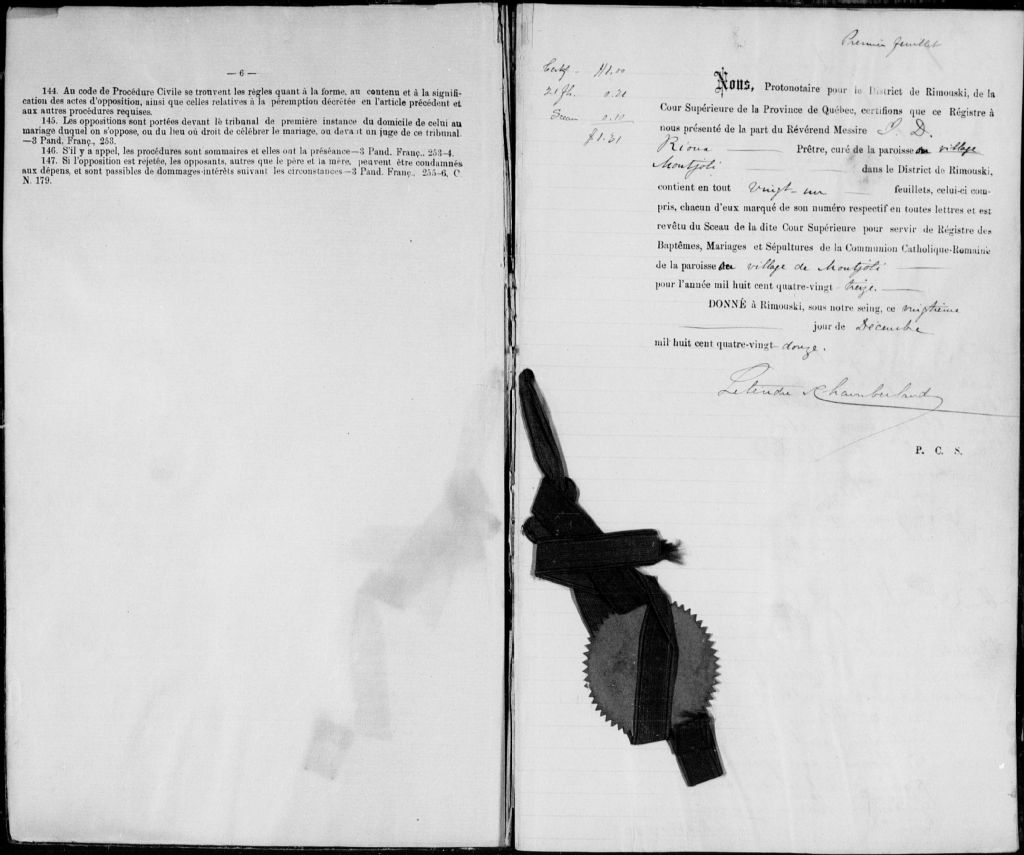 — 6 —
144. Au code de Procédure Civile se trouvent les règles quant à la forme, au contenu et à la signifi-
cation des actes d'opposition, ainsi que celles relatives à la péremption décrétée en l'article précédent et
aux autres procédures requises.
145. Les oppositions sont portées devant le tribunal de première instance du domicile de celui au
mariage duquel on s'oppose, ou du lieu où droit de célébrer le mariage, ou devant un juge de ce tribunal.
—3 Pand. Franç., 253.
146. S'il y a appel, les procédures sont sommaires et elles ont la préséance—3 Pand. Franç.. 253-4.
147. Si l'opposition est rejetée, les opposants, autres que le père et la mère, peuvent être condamnés
aux dépens, et sont passibles de dommages-intérêts suivant les circonstances—3 Pand. Franç., 255-6, C
N. 179.
Premier feuillet
Certif - $1.00
21 fls. 0.21
Sceau 0.10
$1.31
Nous, Protonotaire pour le District de Rimouski, de la
Cour Supérieure de la Province de Québec, certifions que ce Régistre à
nous présenté de la part du Révérend Messire J. D.
Rioux — Prêtre, curé de la paroisse village
Montjoli — dans le District de Rimouski,
contient en tout vingt-un — feuillets, celui-ci com-
pris, chacun d'eux marqué de son numéro respectif en toutes lettres et est
revêtu du Sceau de la dite Cour Supérieure pour servir de Régistre des
Baptêmes, Mariages et Sépultures de la Communion Catholique-Romaine
de la paroisse village de Montjoli —
pour l'année mil huit cent quatre-vingt-treize. —
DONNÉ à Rimouski, sous notre seing, ce vingtième
— jour de Décembre
mil huit cent quatre-vingt-douze.
Letendre & Chamberland
P. C. S.